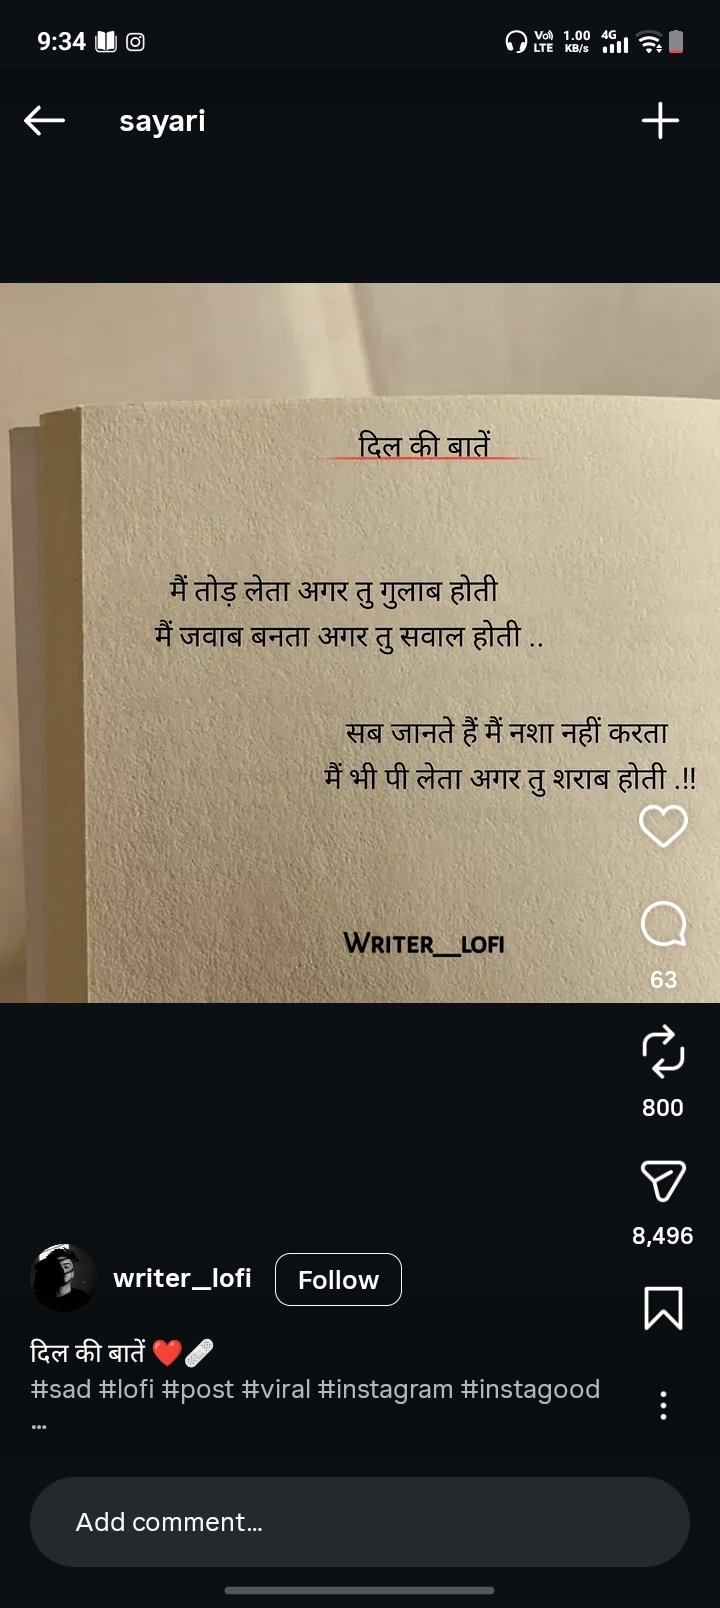 9:34
Vo) LTE 1.00 KB/s 4G
sayari
दिल की बातें
मैं तोड़ लेता अगर तु गुलाब होती
मैं जवाब बनता अगर तु सवाल होती ..
सब जानते हैं मैं नशा नहीं करता
मैं भी पी लेता अगर तु शराब होती .!!
WRITER__LOFI
63
800
8,496
writer__lofi Follow
दिल की बातें ❤️🩹
#sad #lofi #post #viral #instagram #instagood
...
Add comment...